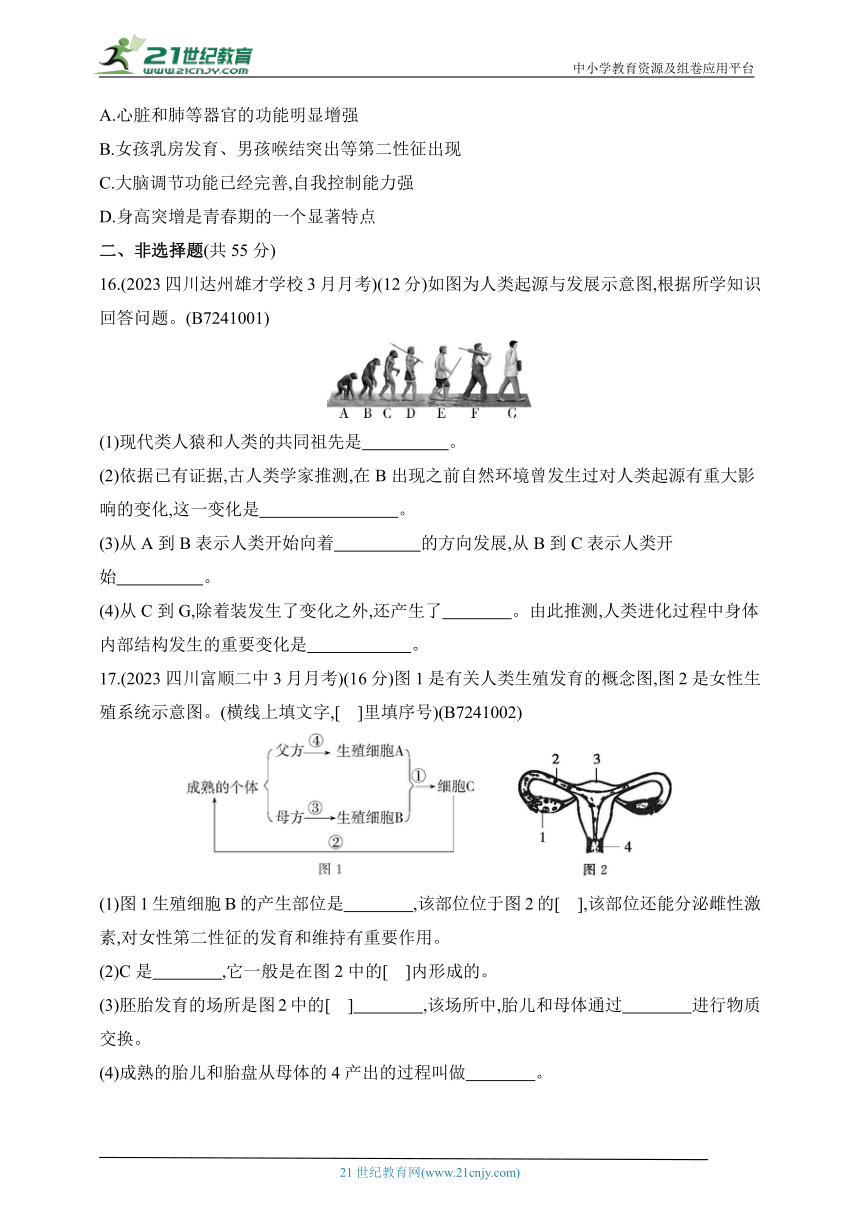 21世纪教育
WWW.21CNJY.COM
中小学教育资源及组卷应用平台
A.心脏和肺等器官的功能明显增强
B.女孩乳房发育、男孩喉结突出等第二性征出现
C.大脑调节功能已经完善,自我控制能力强
D.身高突增是青春期的一个显著特点
二、非选择题(共 55 分)
16.(2023 四川达州雄才学校 3 月月考)(12 分)如图为人类起源与发展示意图,根据所学知识
回答问题。(B7241001)
A B C D E F G
(1)现代类人猿和人类的共同祖先是__________。
(2)依据已有证据,古人类学家推测,在 B 出现之前自然环境曾发生过对人类起源有重大影
响的变化,这一变化是________________。
(3)从 A 到 B 表示人类开始向着__________的方向发展,从 B 到 C 表示人类开
始__________。
(4)从 C 到 G,除着装发生了变化之外,还产生了________。由此推测,人类进化过程中身体
内部结构发生的重要变化是____________。
17.(2023 四川富顺二中 3 月月考)(16 分)图 1 是有关人类生殖发育的概念图,图 2 是女性生
殖系统示意图。(横线上填文字,[ ]里填序号)(B7241002)
父方 ④ 生殖细胞A
成熟的个体 ① 细胞C
母方 ③ 生殖细胞B
②
图 1
2 3
1 4
图 2
(1)图 1 生殖细胞 B 的产生部位是________,该部位位于图 2 的[ ],该部位还能分泌雌性激
素,对女性第二性征的发育和维持有重要作用。
(2)C 是________,它一般是在图 2 中的[ ]内形成的。
(3)胚胎发育的场所是图 2 中的[ ]________,该场所中,胎儿和母体通过________进行物质
交换。
(4)成熟的胎儿和胎盘从母体的 4 产出的过程叫做________。
21 世纪教育网(www.21cnjy.com)